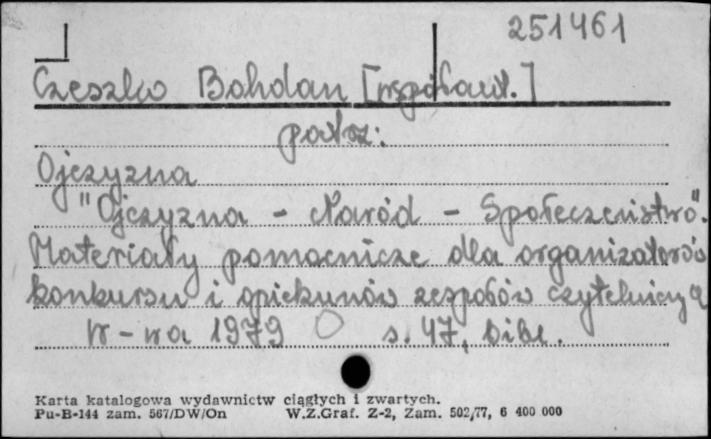 251461
Czeszko Bohdan [współaut.]
patrz:
Ojczyzna
"Ojczyzna - Naród - Społeczeństwo".
Materiały pomocnicze dla organizatorów
konkursu i opiekunów zespołów czytelniczy
W-wa 1979 s. 47, bibl.
Karta katalogowa wydawnictw ciągłych i zwartych.
Pu-B-144 zam. 567/DW/On W.Z.Graf. Z-2, Zam. 502/77, 6 400 000